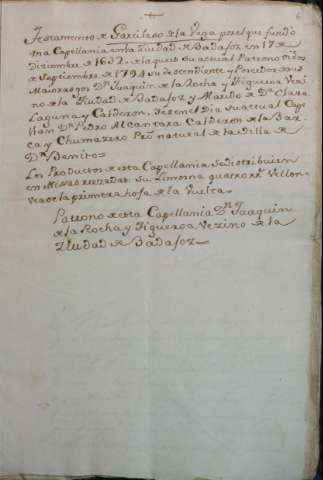 6
Testamento de Garcilaso de la Vega por el que fundó
una Capellania en la Ziudad de Badajoz en 17 de
Diciembre de 1632, de la que es su actual Patrono
de Septiembre, de 1794 su descendiente y Poseedor de
Maiorazgos Dn. Joaquin de la Rocha y Figueroa Vezi
no de la Ziudad de Badajoz y Marido de Da. Clara
Laguna y Calderon, y es en el Dia su actual Cape
llan Dn. Pedro Alcantara Calderon de la Bar
ca y Chumazero Pro. natural de la Villa de
Dn. Benito=
Los Productos de esta Capellania se distribuien
en Missas rezadas su Limosna quatro rs. Vellon=
vease la primera hoja de la Vuelta=
Patrono de esta Capellania Dn. Joaquin
de la Rocha y Figueroa Vezino de la
Ziudad de Badajoz=